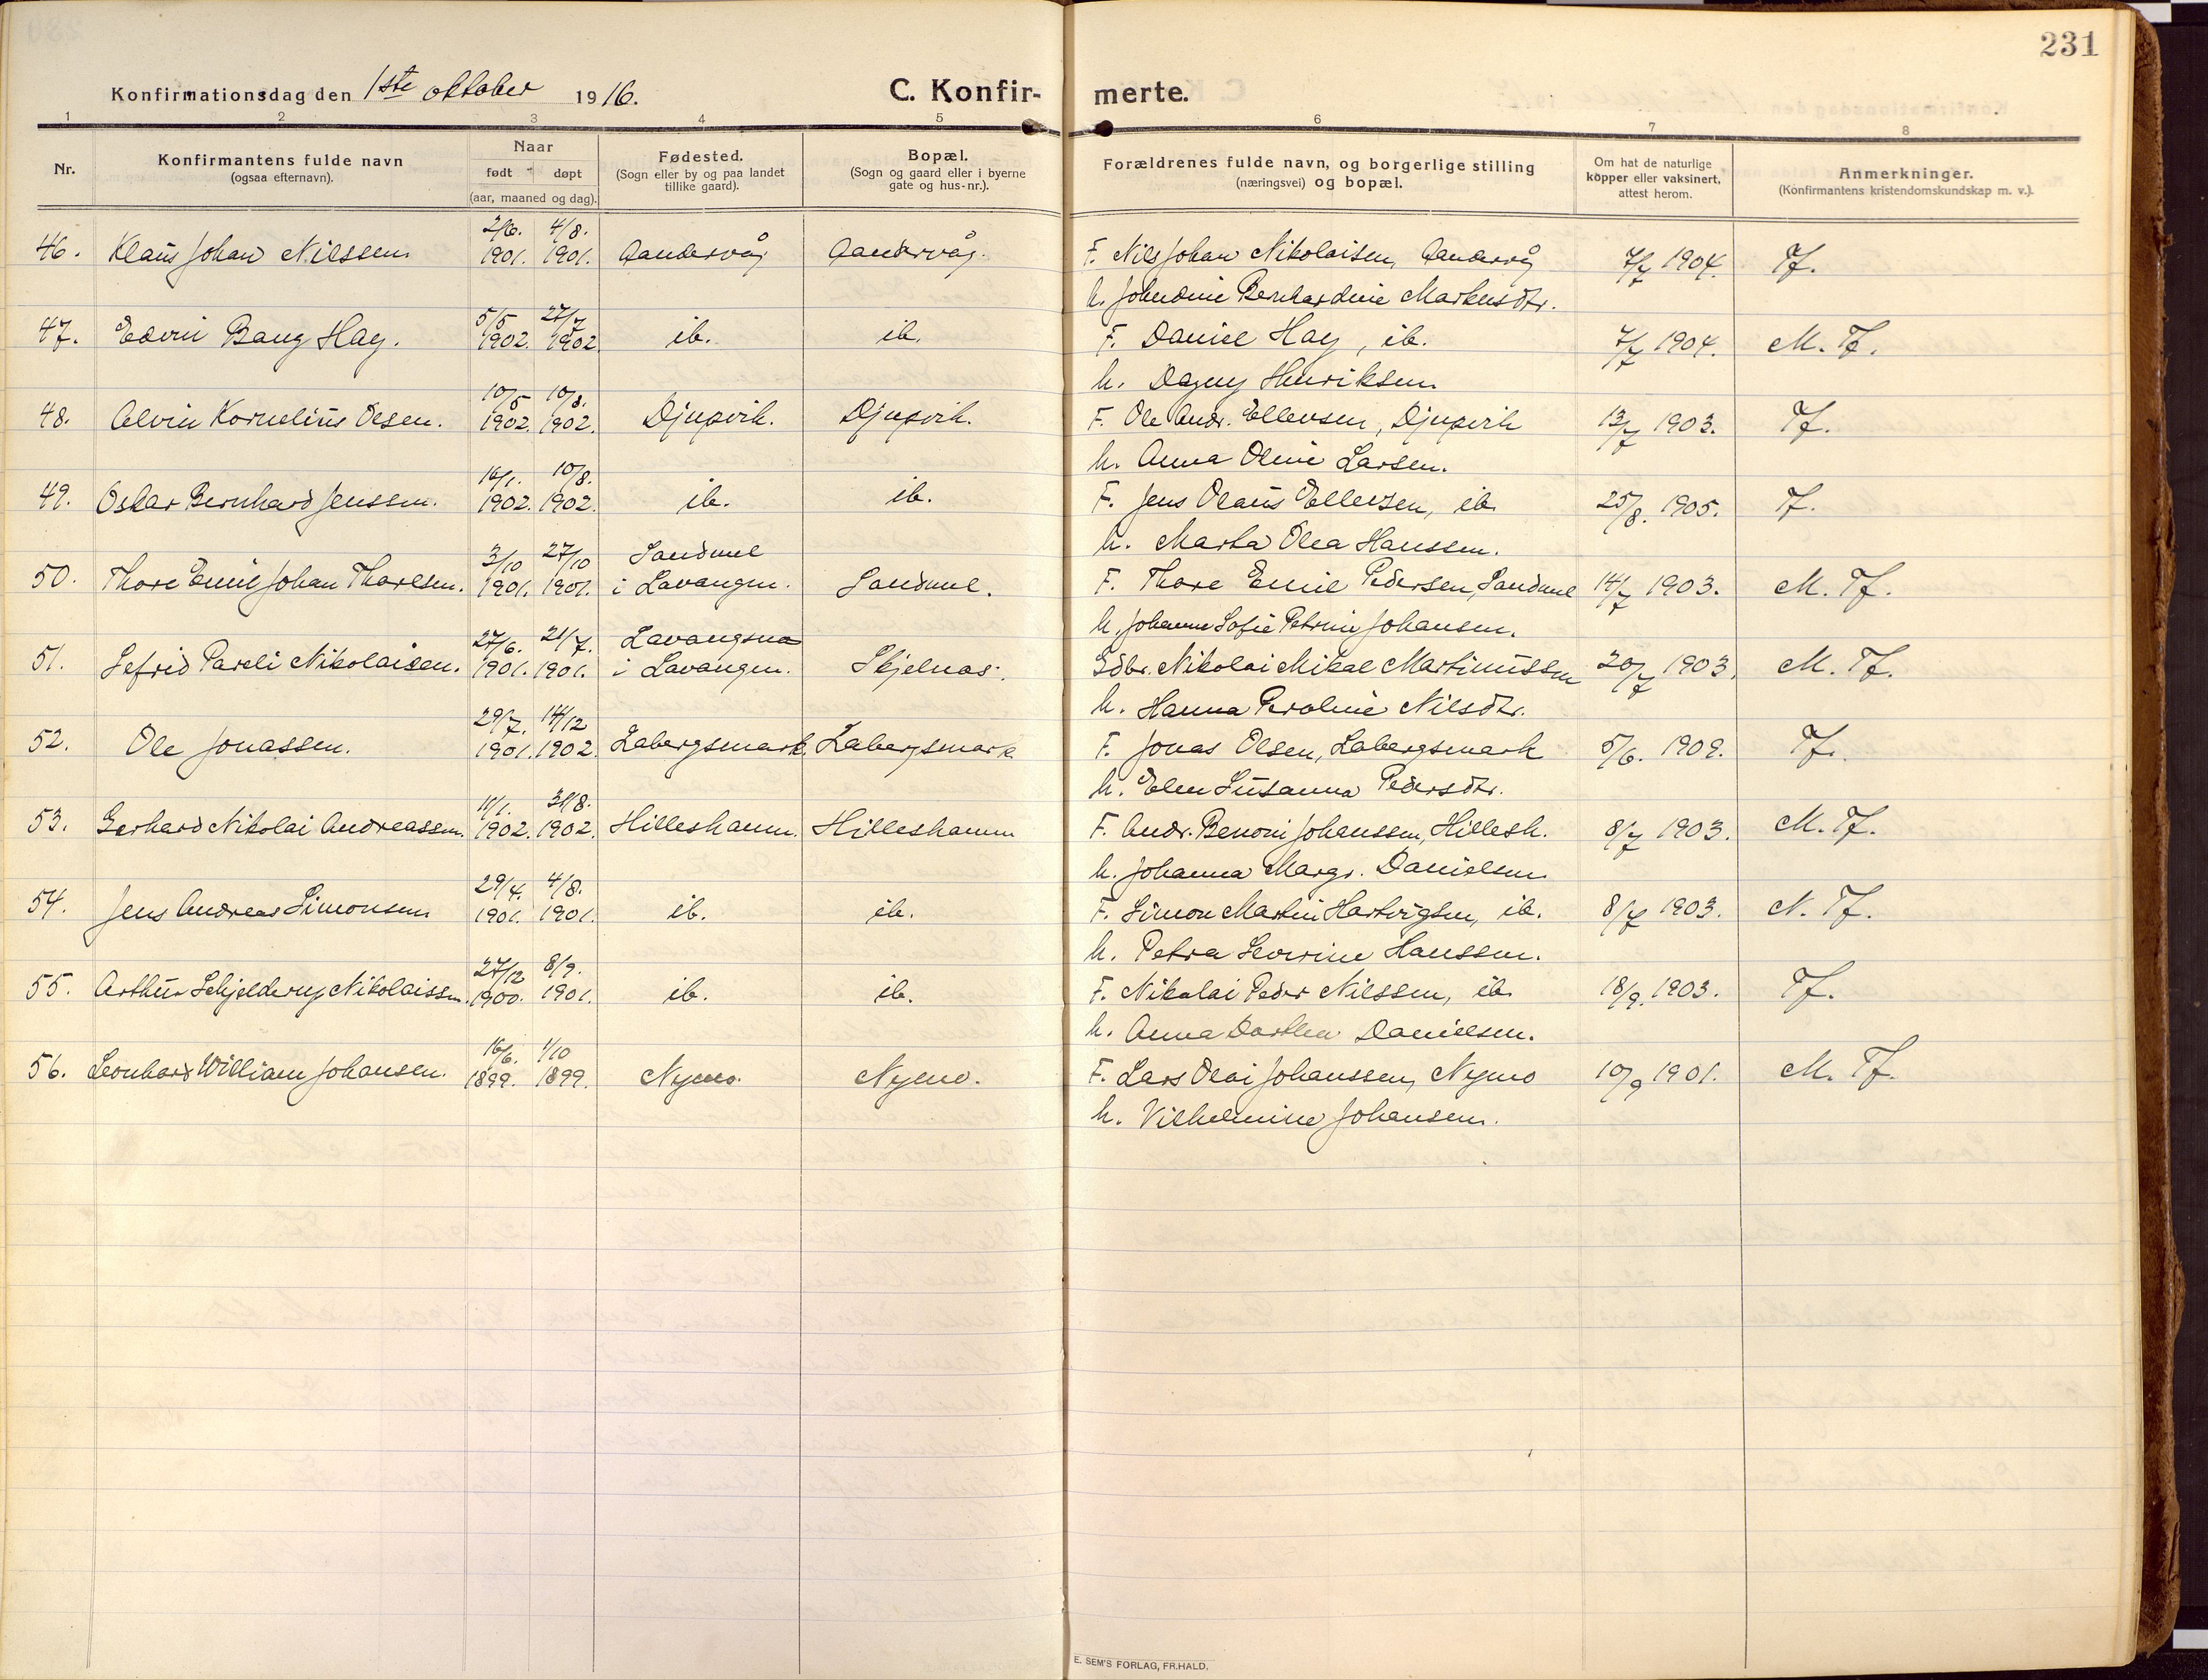 231
Konfirmationsdag den 1ste oktober 1916.
C. Konfirmerte.
1 2 3 4 5 6 7 8
Nr.
Konfirmantens fulde navn
(ogsaa efternavn).
Naar
født døpt
(aar, maaned og dag).
Fødested.
(Sogn eller by og paa landet
tillike gaard).
Bopæl.
(Sogn og gaard eller i byerne
gate og hus-nr.).
Forældrenes fulde navn, og borgerlige stilling
(næringsvei) og bopæl.
Om hat de naturlige
kopper eller vaksinert,
attest herom.
Anmerkninger.
(Konfirmantens kristendomskundskap m. v.).
2/6. 4/8.
46. Klaus Johan Nilssen 1901. 1901. Gandersvåg Gandervåg. F. Nils Johan Nikolaisen, Gandervåg 7/7 1904. Tf.
h. Johndine Bernhardine Markusdtr.
5/5 27/7
47. Edvin Bang Hay. 1902. 1902. ib. ib. F. Daniel Hay, ib. 7/7 1904. M. Tf.
h. Dagny Henriksen
10/5 10/8.
48. Alvin Kornelius Olsen. 1902. 1902. Djupvik. Djupvik. F. Ole Andr. Ellevsen, Djupvik 13/7 1903. Tf.
h. Anna Oline Larsen.
16/1. 10/8.
49. Oskar Bernhard Jenssen. 1902. 1902. ib. ib. F. Jens Olaus Ellevsen, ib. 25/8. 1905. Tf.
h. Marta Olea Hanssen.
3/10 27/10 Sandnul
50. Thore Emil Johan Thoresen. 1901. 1901. i Lavangen. Sandnul. F. Thore Emil Pedersen, Sandnul 14/7 1903. M. Tf.
h. Johanne Sofie Petrine Johansen.
27/6. 21/7. Lavangsnes
51. Sefrid Pareli Nikolaisen. 1901. 1901. i Lavangen. Skjelnes. Gdbr. Nikolai Mikal Martinussen 20/7 1903. M. Tf.
h. Hanna Peroline Nilsdtr.
29/7. 14/12
52. Ole Jonassen. 1901. 1902. Labergsmark. Labergsmark F. Jonas Olsen, Labergsmark 5/6. 1909. Tf.
h. Elen Susanna Pedersdtr.
11/1. 31/8.
53. Gerhard Nikolai Andreassen. 1902. 1902. Hilleshamn. Hilleshamn F. Andr. Benoni Johanssen, Hillesh. 8/7 1903. M. Tf.
h. Johanna Margr. Danielsen
29/4. 4/8.
54. Jens Andreas Simonsen 1901. 1901. ib. ib. F. Simon Martin Hartvigsen, ib. 8/7 1903. N. Tf.
h. Petra Severine Hanssen.
27/12 8/9.
55. Arthur Schjelderup Nikolaissen. 1900. 1901. ib. ib. F. Nikolai Peder Nilssen, ib. 18/9. 1903. Tf.
h. Anna Dorthea Danielsen.
16/6. 1/10
56. Leonhard William Johansen. 1899. 1899. Nymo. Nymo. F. Lars Olai Johanssen, Nymo 10/9 1901. M. Tf.
h. Vilhelmine Johansen.
E. SEM'S FORLAG, FR.HALD.